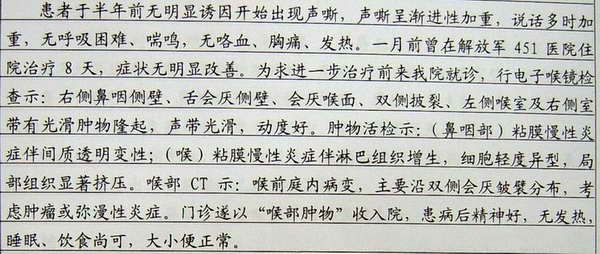 患者于半年前无明显诱因开始出现声嘶，声嘶呈渐进性加重，说话多时加
重，无呼吸困难、喘鸣，无咯血、胸痛、发热。一月前曾在解放军 451 医院住
院治疗 8 天，症状无明显改善。为求进一步治疗前来我院就诊，行电子喉镜检
查示：右侧鼻咽侧壁、舌会厌侧壁、会厌喉面、双侧披裂、左侧喉室及右侧室
带有光滑肿物隆起，声带光滑，动度好。肿物活检示：（鼻咽部）粘膜慢性炎
症伴间质透明变性；（喉）粘膜慢性炎症伴淋巴组织增生，细胞轻度异型，局
部组织显著挤压。喉部 CT 示：喉前庭内病变，主要沿双侧会厌皱襞分布，考
虑肿瘤或弥漫性炎症。门诊遂以“喉部肿物”收入院，患病后精神好，无发热，
睡眠、饮食尚可，大小便正常。